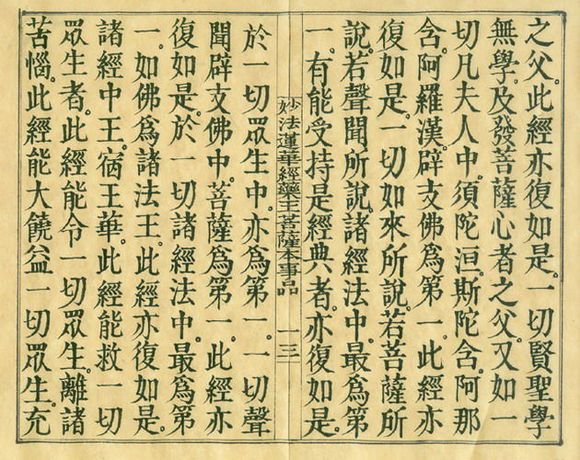 之父。此經亦復如是。一切賢聖學
無學及發菩薩心者之父。又如一
切凡夫人中。須陀洹。斯陀含。阿那
含。阿羅漢。辟支佛爲第一。此經亦
復如是。一切如來所說。若菩薩所
說。若聲聞所說。諸經法中。最爲第
一。有能受持是經典者。亦復如是
妙法蓮華經藥王菩薩本事品 一三
於一切眾生中。亦爲第一。一切聲
聞辟支佛中。菩薩爲第一。此經亦
復如是。於一切諸經法中。最爲第
一。如佛爲諸法王。此經亦復如是。
諸經中王。宿王華。此經能救一切
眾生者。此經能令一切眾生。離諸
苦惱。此經能大饒益一切眾生。充